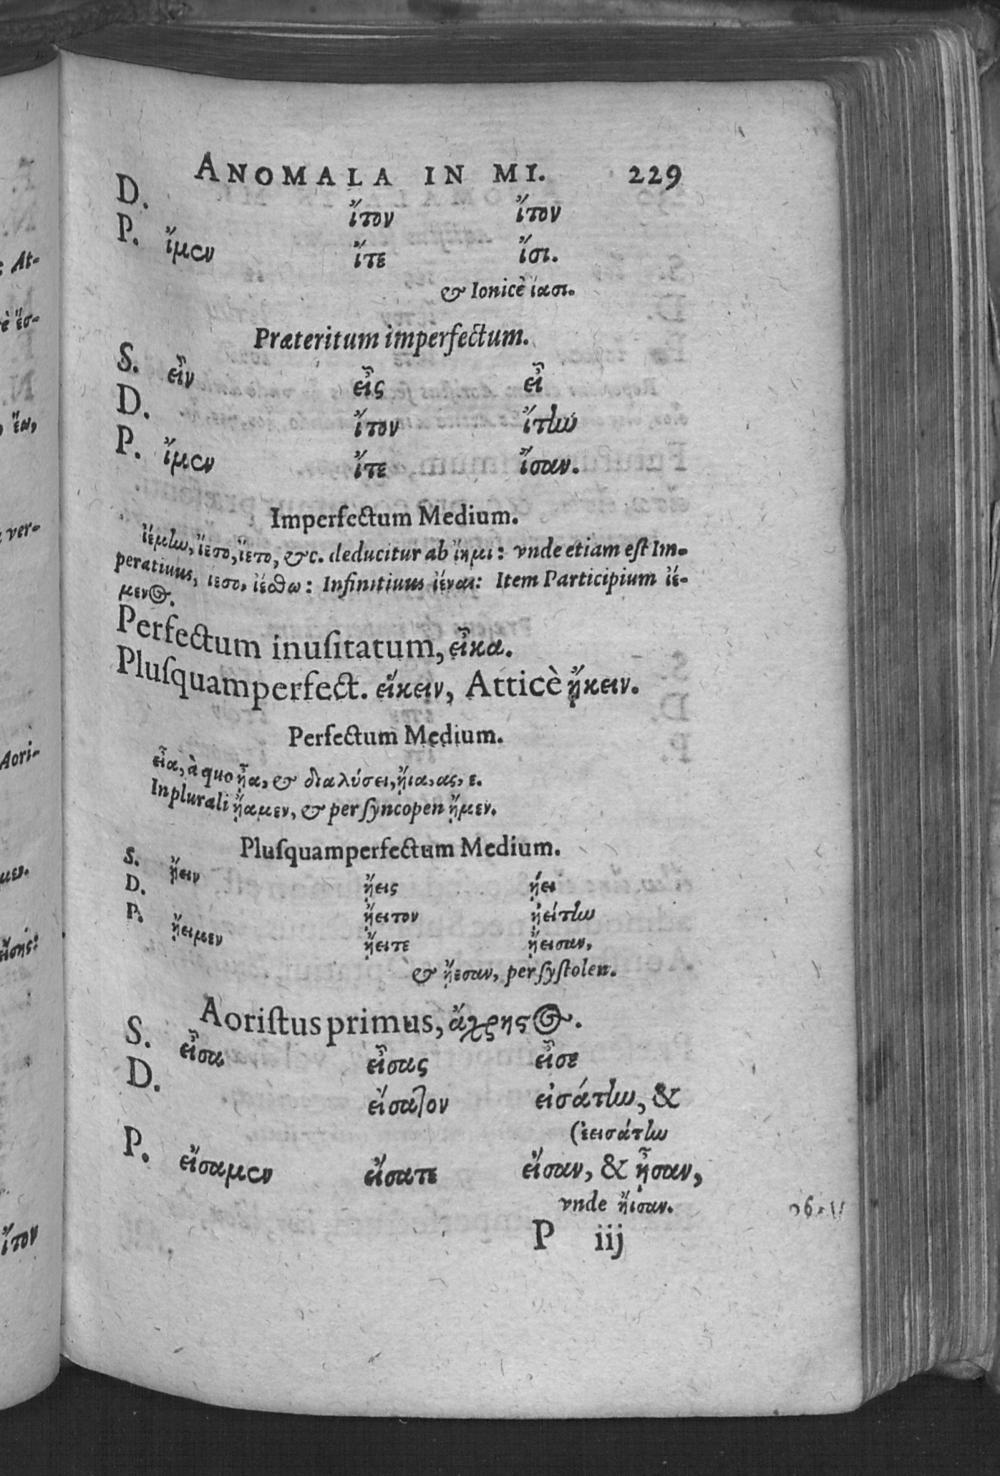 ANOMALA IN MI. 229
D. ἴτον ἴτον
P. ἴμεν ἴτε ἴσι.
& Ionicè ἴασι.
Præteritum imperfectum.
S. εἶν εἶς εἶ
D. ἴτον ἴτην
P. ἴμεν ἴτε ἴσαν.
Imperfectum Medium.
ἱέμην, ἵεσο, ἵετο, &c. deducitur ab ἵημι: vnde etiam est Im-
peratiuus, ἵεσο, ἱέσθω: Infinitiuus ἰέναι: Item Participium ἱέ-
μενος.
Perfectum inuſitatum, εἶκα.
Pluſquamperfect. εἴκειν, Atticè ᾔκειν.
Perfectum Medium.
εἶα, à quo ᾖα, & διαλύσει, ἤια, ας, ε.
In plurali ᾔαμεν, & per ſyncopen ᾖμεν.
Pluſquamperfectum Medium.
S. ᾔειν ᾔεις ᾔει
D. ᾔειτον ᾐείτην
P. ᾔειμεν ᾔειτε ᾔεισαν,
& ᾔεσαν, per ſyſtolen.
Aoriſtus primus, ἄχρηστος.
S. εἶσα εἶσας εἶσε
D. εἴσατον εἰσάτην, &
(ἐεισάτην
P. εἴσαμεν εἴσατε εἴσαν, & ᾖσαν,
vnde ἤισαν.
P iij
: At-
è ἔσ-
, ἔω,
ver-
Aori-
μεν.
εἴσης:
ἴτον